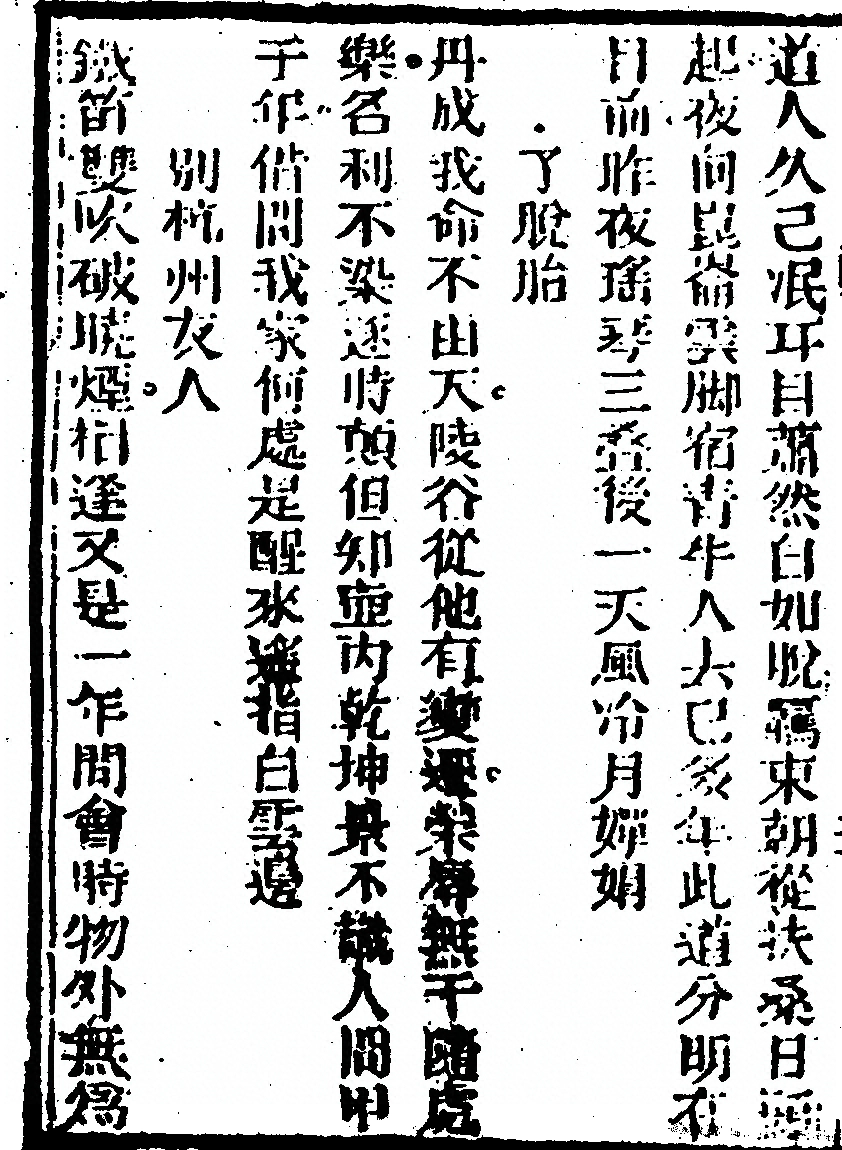 道人久已泯耳目蕭然自如脫羈束朝從扶桑日頭
起夜向崑崙雲脚宿青牛人去已多年此道分明在
目前昨夜瑤琴三疊後一天風冷月嬋娟
了脫胎
丹成我命不由天陵谷從他有變遷榮辱無干隨處
樂名利不染逐時顛但知壺內乾坤景不識人間甲
子年借問我家何處是醒來遙指白雲邊
別杭州友人
鐵笛雙吹破曉煙相逢又是一年間會時物外無爲